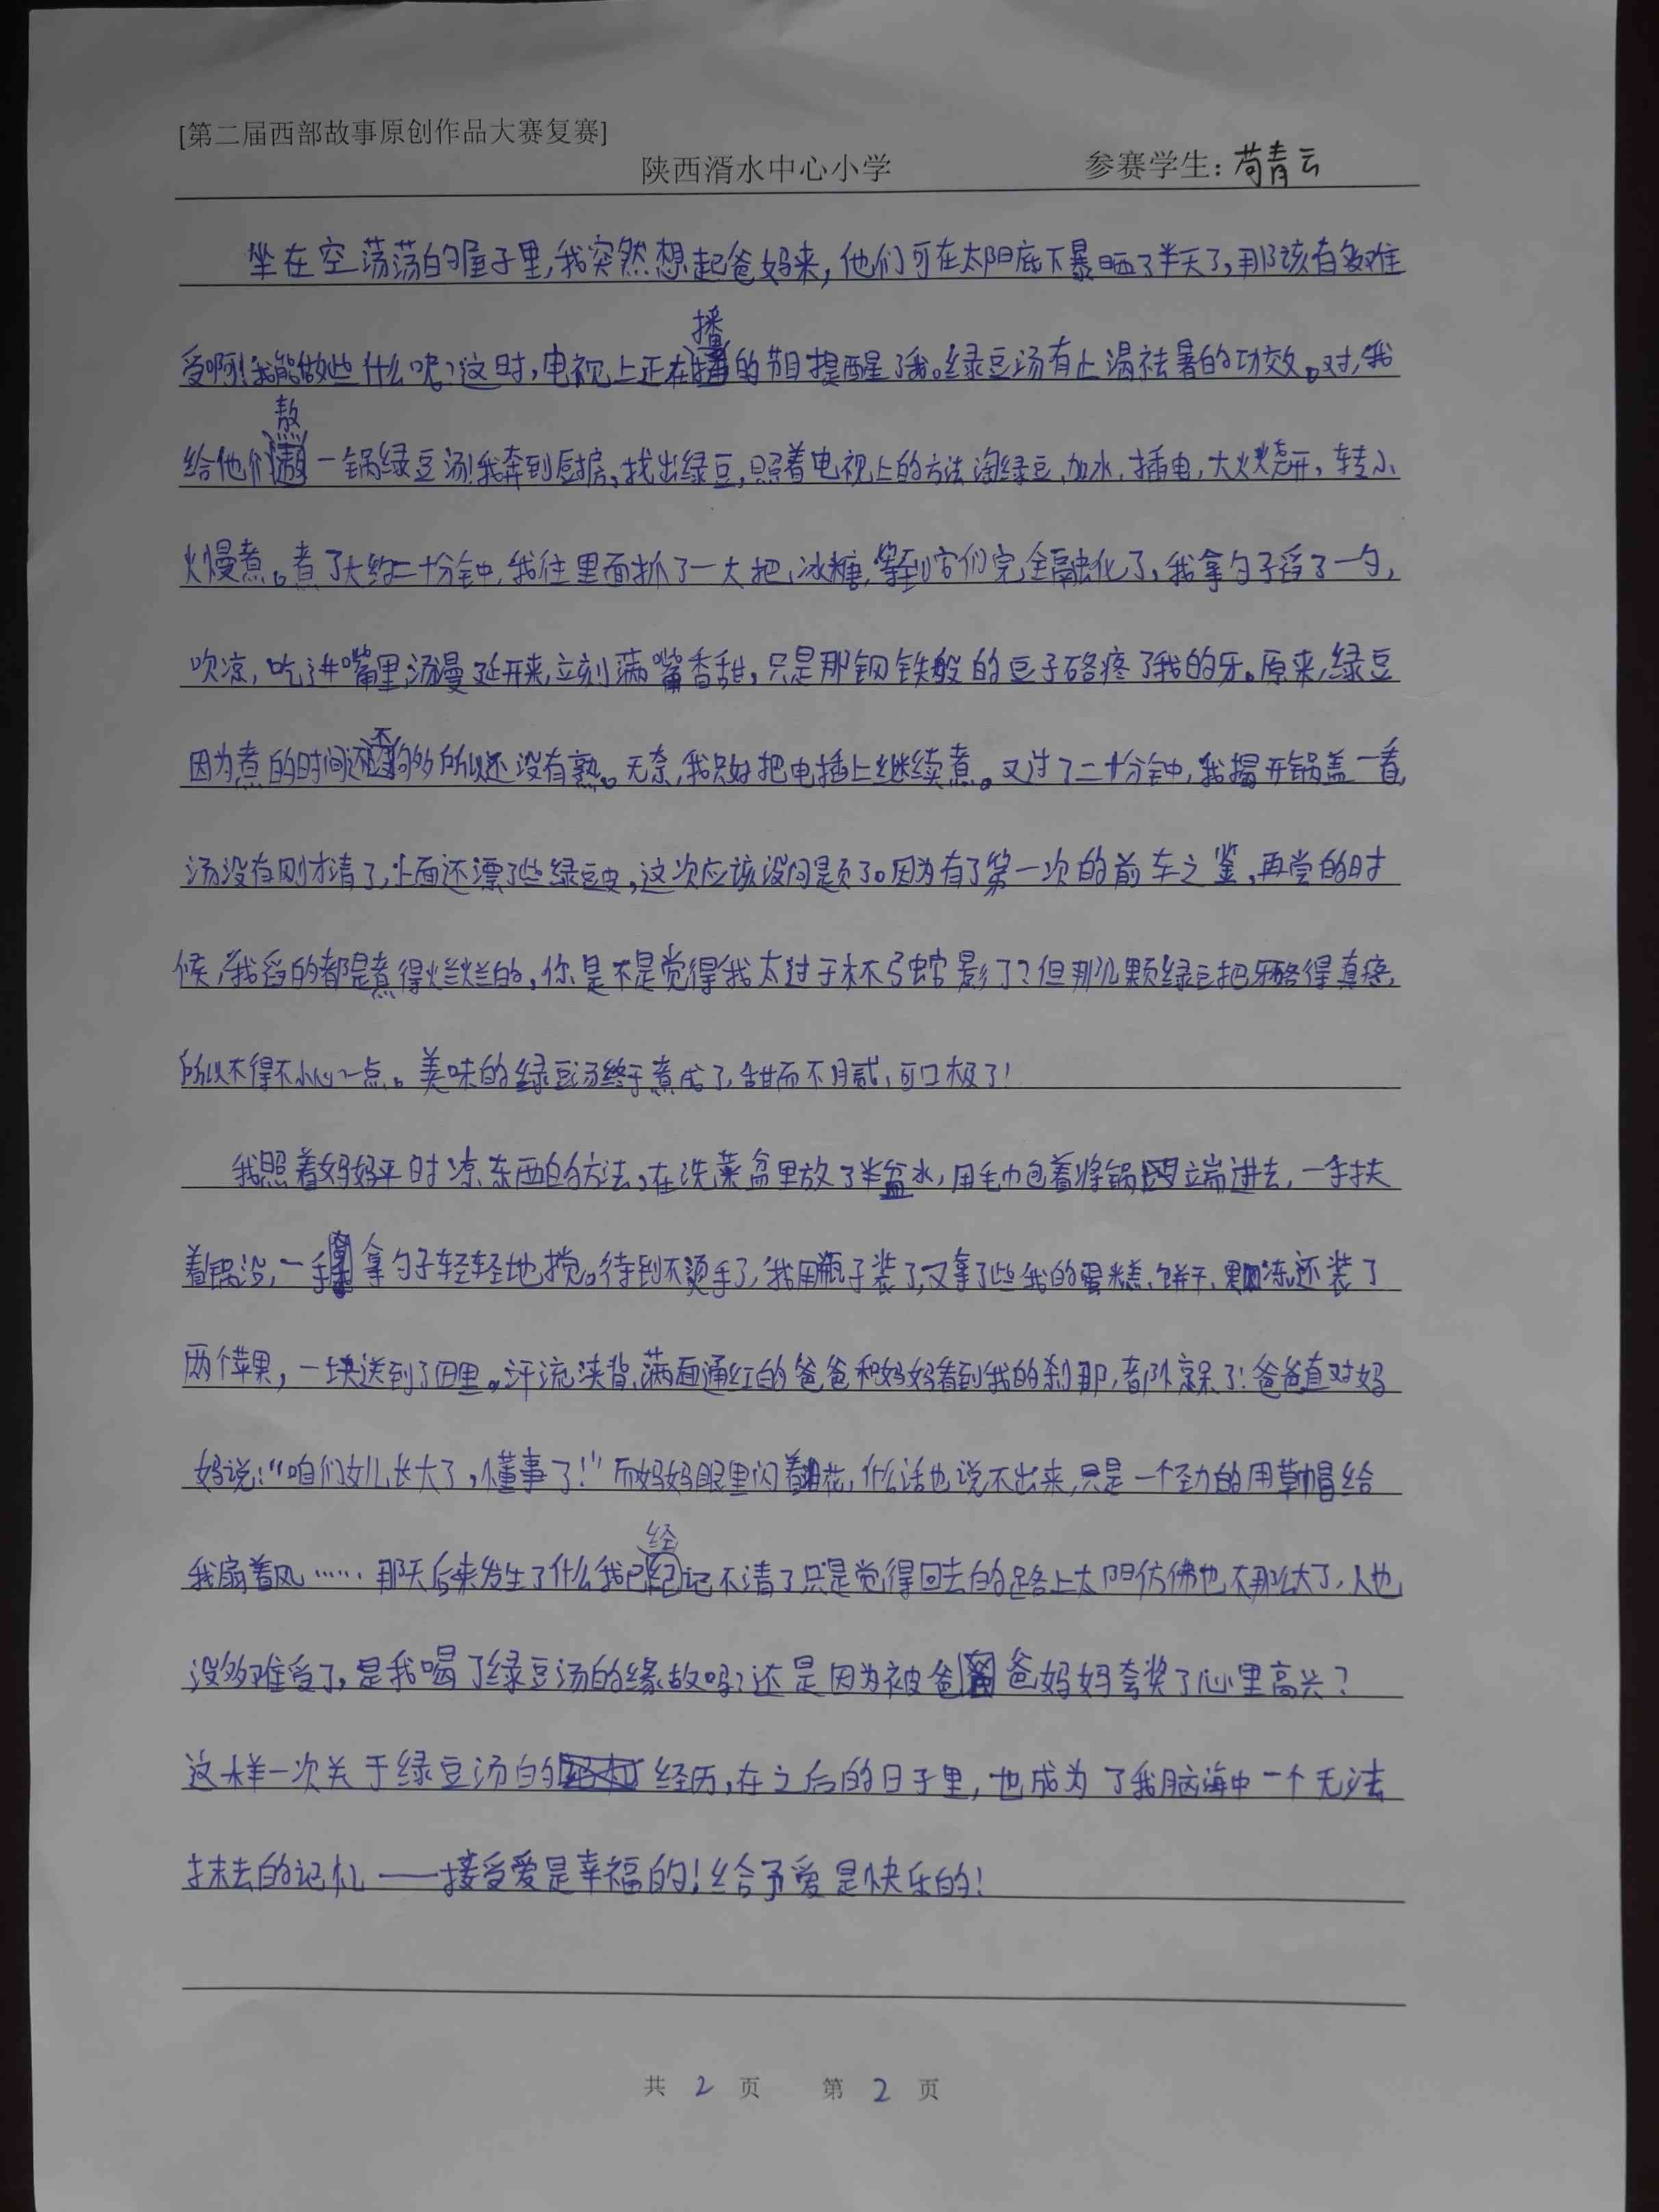 [第二届西部故事原创作品大赛复赛]
陕西湑水中心小学 参赛学生：苟青云
坐在空荡荡的屋子里，我突然想起爸妈来，他们可在太阳底下暴晒了半天了，那该有多难
受啊！我能做些什么呢？这时，电视上正在播的节目提醒了我。绿豆汤有止渴祛暑的功效。对，我
给他们熬一锅绿豆汤！我奔到厨房，找出绿豆，照着电视上的方法淘绿豆，加水，插电，大火烧开，转小
火慢煮。煮了大约二十分钟，我往里面抓了一大把冰糖，等到它们完全融化了，我拿勺子舀了一勺，
吹凉，吃进嘴里汤漫延开来，立刻满嘴香甜，只是那钢铁般的豆子硌疼了我的牙。原来，绿豆
因为煮的时间还不够多所以还没有熟。无奈，我只好把电插上继续煮。又过了二十分钟，我揭开锅盖一看，
汤没有刚才清了，上面还漂了些绿豆皮，这次应该没问题了。因为有了第一次的前车之鉴，再尝的时
候，我舀的都是煮得烂烂的。你是不是觉得我太过于杯弓蛇影了？但那几颗绿豆把牙硌得真疼，
所以不得不小心一点。美味的绿豆汤终于煮成了，甜而不腻，可口极了！
我照着妈妈平时凉东西的方法，在洗菜盆里放了半盆水，用毛巾包着将锅立端进去，一手扶
着锅沿，一手拿勺子轻轻地搅。待到不烫手了，我用瓶子装了，又拿了些我的蛋糕、饼干、果冻还装了
两个苹果，一块送到了田里。汗流浃背、满面通红的爸爸和妈妈看到我的刹那，都惊呆了！爸爸直对妈
妈说：“咱们女儿长大了，懂事了！”而妈妈眼里闪着泪花，什么话也说不出来，只是一个劲的用草帽给
我扇着风……那天后来发生了什么我已经记不清了只是觉得回去的路上太阳仿佛也不那么大了，人也
没多难受了，是我喝了绿豆汤的缘故吗？还是因为被爸爸妈妈夸奖了心里高兴？
这样一次关于绿豆汤的经历，在之后的日子里，也成为了我脑海中一个无法
抹去的记忆——接受爱是幸福的！给予爱是快乐的！
共 2 页 第 2 页